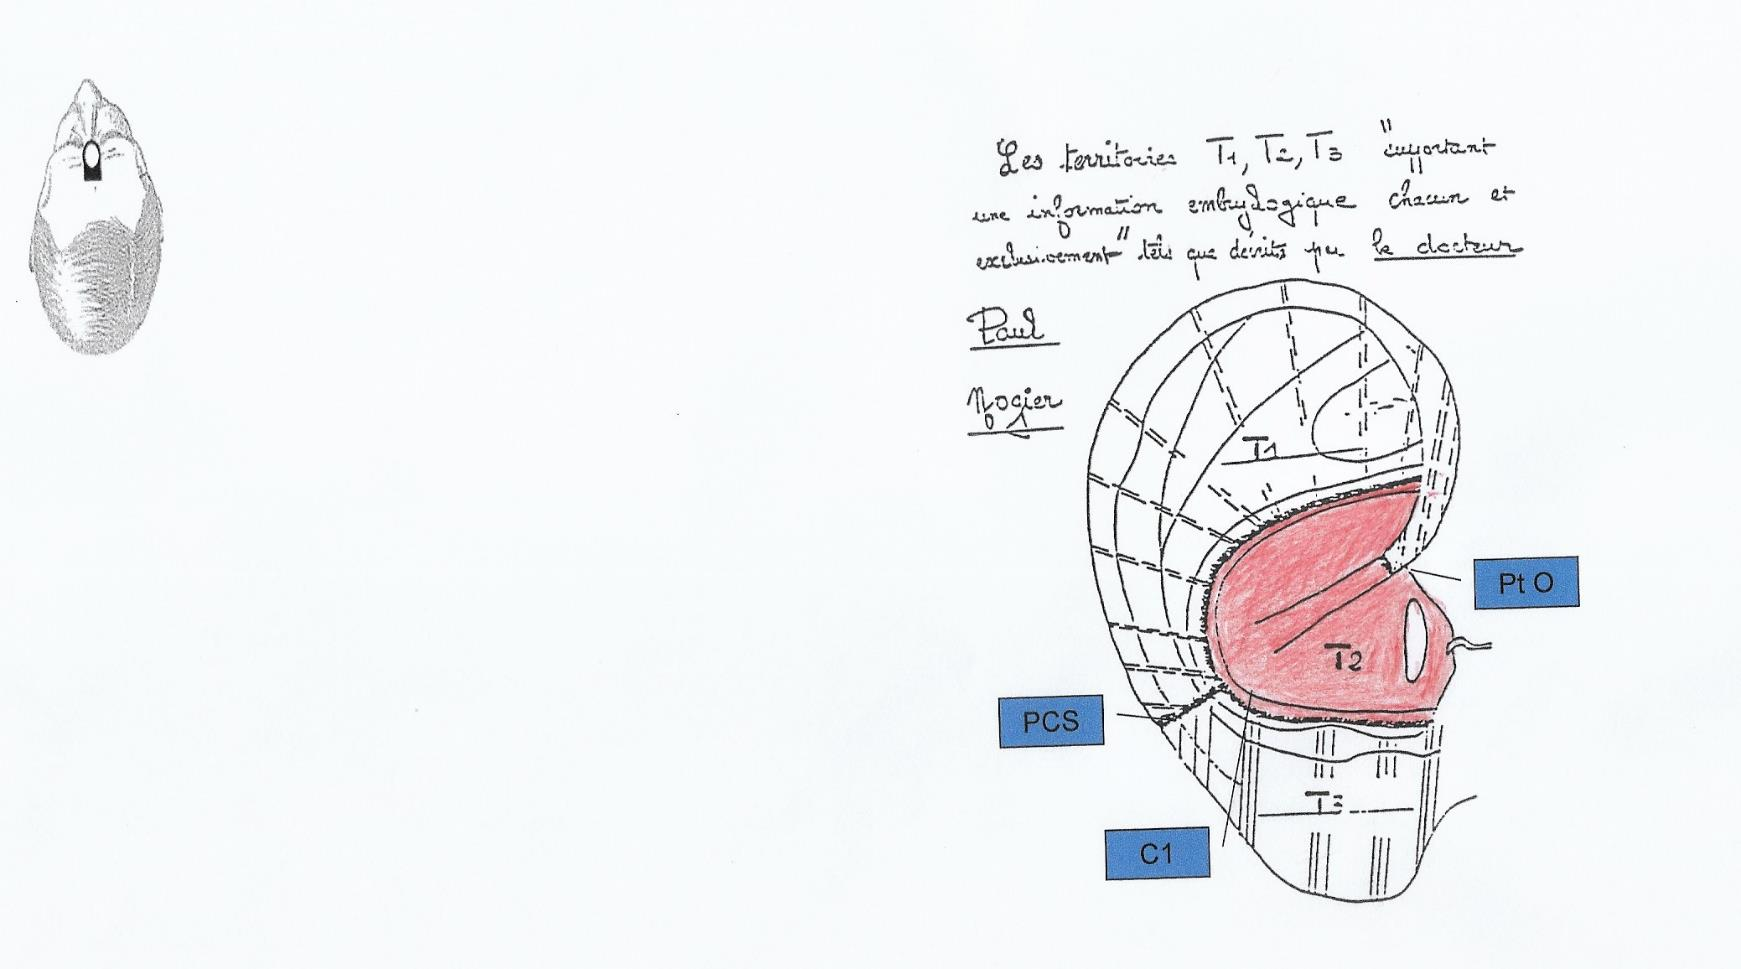 Les territoires T1, T2, T3 "important
une information embryologique chacun et
exclusivement" tels que décrits par le docteur
Paul
Nogier
T1
Pt O
T2
PCS
T3
C1